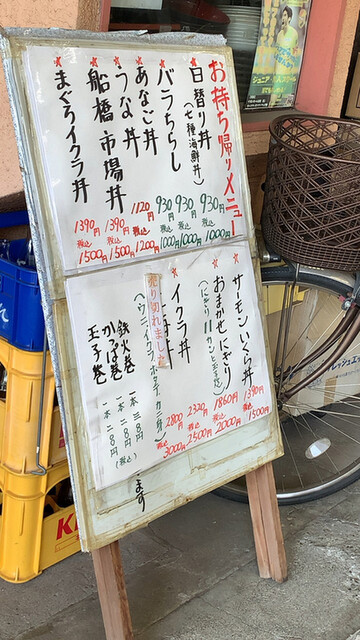 お持ち帰りメニュー
日替り丼
(七種海鮮丼)
930
税込
1000円
バラちらし
930
税込
1000円
あなご丼
930
税込
1000円
うな丼
1120
税込
1200円
船橋市場丼
1390円
税込
1500円
まぐろイクラ丼
1390円
税込
1500円
サーモンいくら丼
1390円
税込
1500円
おまかせにぎり
(にぎり11カンと玉子焼)
1860円
税込
2000円
イクラ丼
2320円
税込
2500円
売り切れました
丼
(ウニ、イクラ、ホタテ、カニ、
2800円
税込
3000円
鉄火巻
一本 三三8円
かっぱ巻
一本 二二8円
玉子巻
一本 二二8円
(税込)
ます